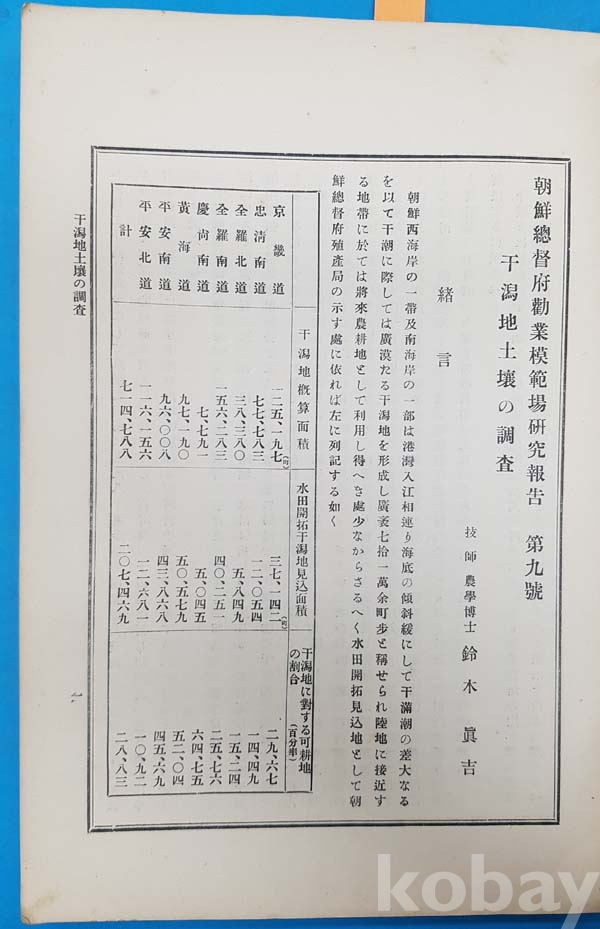 朝鮮總督府勸業模範場硏究報告 第九號
干潟地土壤の調査
技師 農學博士 鈴木眞吉
緖言
朝鮮西海岸の一帶及南海岸の一部は港灣入江相連り海底の傾斜緩にして干滿潮の差大なる
を以て干潮に際しては廣漠たる干潟地を形成し廣袤七拾一萬余町步と稱せられ陸地に接近す
る地帶に於ては將來農耕地として利用し得へき處少なからさるへく水田開拓見込地として朝
鮮總督府殖產局の示す處に依れば左に列記する如く
干潟地槪算面積 水田開拓干潟地見込面積 干潟地に對する可耕地の割合(百分率)
京畿道 一二五、一九七(町) 三七、一四二(町) 二九、六七
忠淸南道 七七、七八三 一二、〇五四 一四、四九
全羅北道 三八、三八〇 五、八四九 一五、二四
全羅南道 一五六、二八三 四〇、二五一 二五、七六
慶尙南道 七、七九一 五、〇四五 六四、七五
黃海道 九七、一九〇 五〇、五七九 五二、〇四
平安南道 九六、〇〇八 四三、八六八 四五、六九
平安北道 一一六、一五六 一二、六八一 一〇、九二
計 七一四、七八八 二〇七、四六九 二八、八三
干潟地土壤の調査
一
kobay